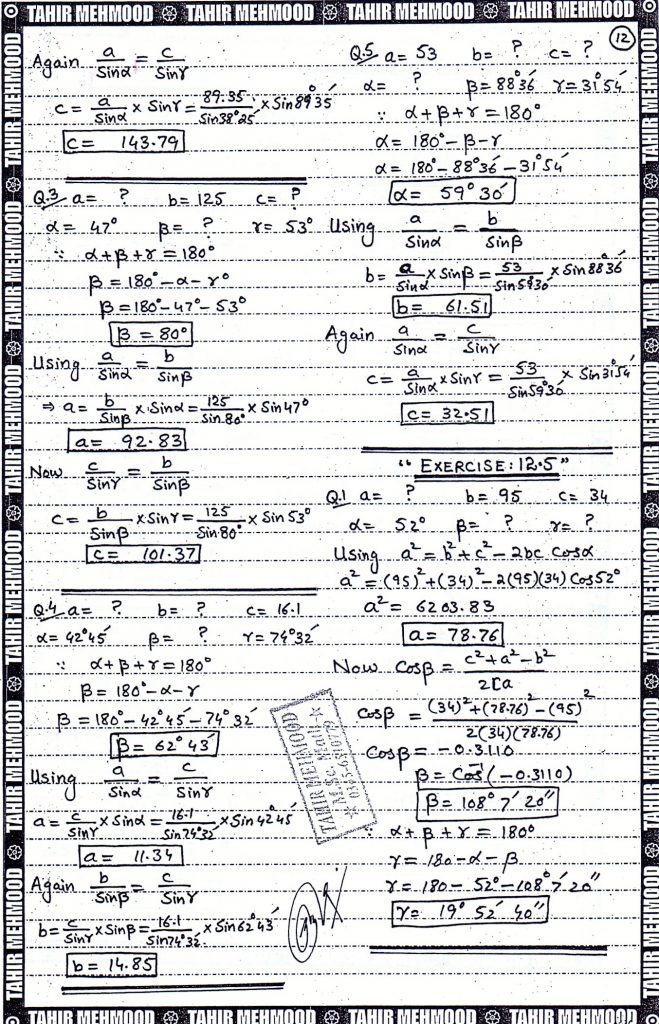 TAHIR MEHMOOD TAHIR MEHMOOD TAHIR MEHMOOD TAHIR MEHMOOD
12
Again a/Sinα = c/Sinγ
c = a/Sinα × Sinγ = 89.35/Sin38°25′ × Sin89°35′
c = 143.79
Q.3 a= ? b= 125 c= ?
α= 47° β= ? γ= 53°
∵ α+β+γ = 180°
β = 180°-α-γ°
β = 180°-47°-53°
β = 80°
Using a/Sinα = b/Sinβ
⇒ a = b/Sinβ × Sinα = 125/Sin80° × Sin47°
a = 92.83
Now c/Sinγ = b/Sinβ
c = b/Sinβ × Sinγ = 125/Sin80° × Sin53°
c = 101.37
Q.4 a= ? b= ? c= 16.1
α= 42°45′ β= ? γ= 74°32′
∵ α+β+γ = 180°
β = 180°-α-γ
β = 180°-42°45′-74°32′
β = 62°43′
Using a/Sinα = c/Sinγ
a = c/Sinγ × Sinα = 16.1/Sin74°32′ × Sin42°45′
a = 11.34
Again b/Sinβ = c/Sinγ
b = c/Sinγ × Sinβ = 16.1/Sin74°32′ × Sin62°43′
b = 14.85
Q.5 a= 53 b= ? c= ?
α= ? β= 88°36′ γ= 31°54′
∵ α+β+γ = 180°
α = 180°-β-γ
α = 180°-88°36′-31°54′
α = 59°30′
Using a/Sinα = b/Sinβ
b = a/Sinα × Sinβ = 53/Sin59°30′ × Sin88°36′
b = 61.51
Again a/Sinα = c/Sinγ
c = a/Sinα × Sinγ = 53/Sin59°30′ × Sin31°54′
c = 32.51
"EXERCISE: 12.5"
Q.1 a= ? b= 95 c= 34
α= 52° β= ? γ= ?
Using a² = b²+c²-2bc Cosα
a² = (95)²+(34)²-2(95)(34) Cos52°
a² = 6203.83
a = 78.76
Now Cosβ = c²+a²-b²/2ca
Cosβ = (34)²+(78.76)²-(95)²/2(34)(78.76)
Cosβ = -0.3110
β = Cos⁻¹(-0.3110)
β = 108° 7′ 20″
∵ α+β+γ = 180°
γ = 180-α-β
γ = 180-52°-108° 7′ 20″
γ = 19° 52′ 40″
TAHIR MEHMOOD
M.Sc. Math
TAHIR MEHMOOD TAHIR MEHMOOD TAHIR MEHMOOD TAHIR MEHMOOD